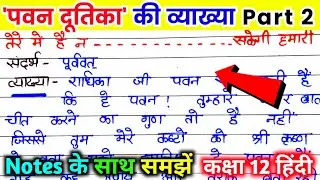 'पवन दूतिका' की व्याख्या Part 2
तेरे मे है न - - - - - - - - - - सकेगी हमारी
संदर्भ - पूर्ववत
व्याख्या - राधिका जी पवन
कि हे पवन! तुम्हारे
चीत करने का गुण तो है नहीं
जिससे तुम मेरे कष्टों को श्री कृष्ण
Notes के साथ समझें कक्षा 12 हिंदी